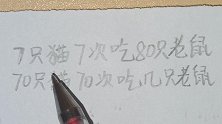 7只猫7次吃80只老鼠
70只猫70次吃几只老鼠